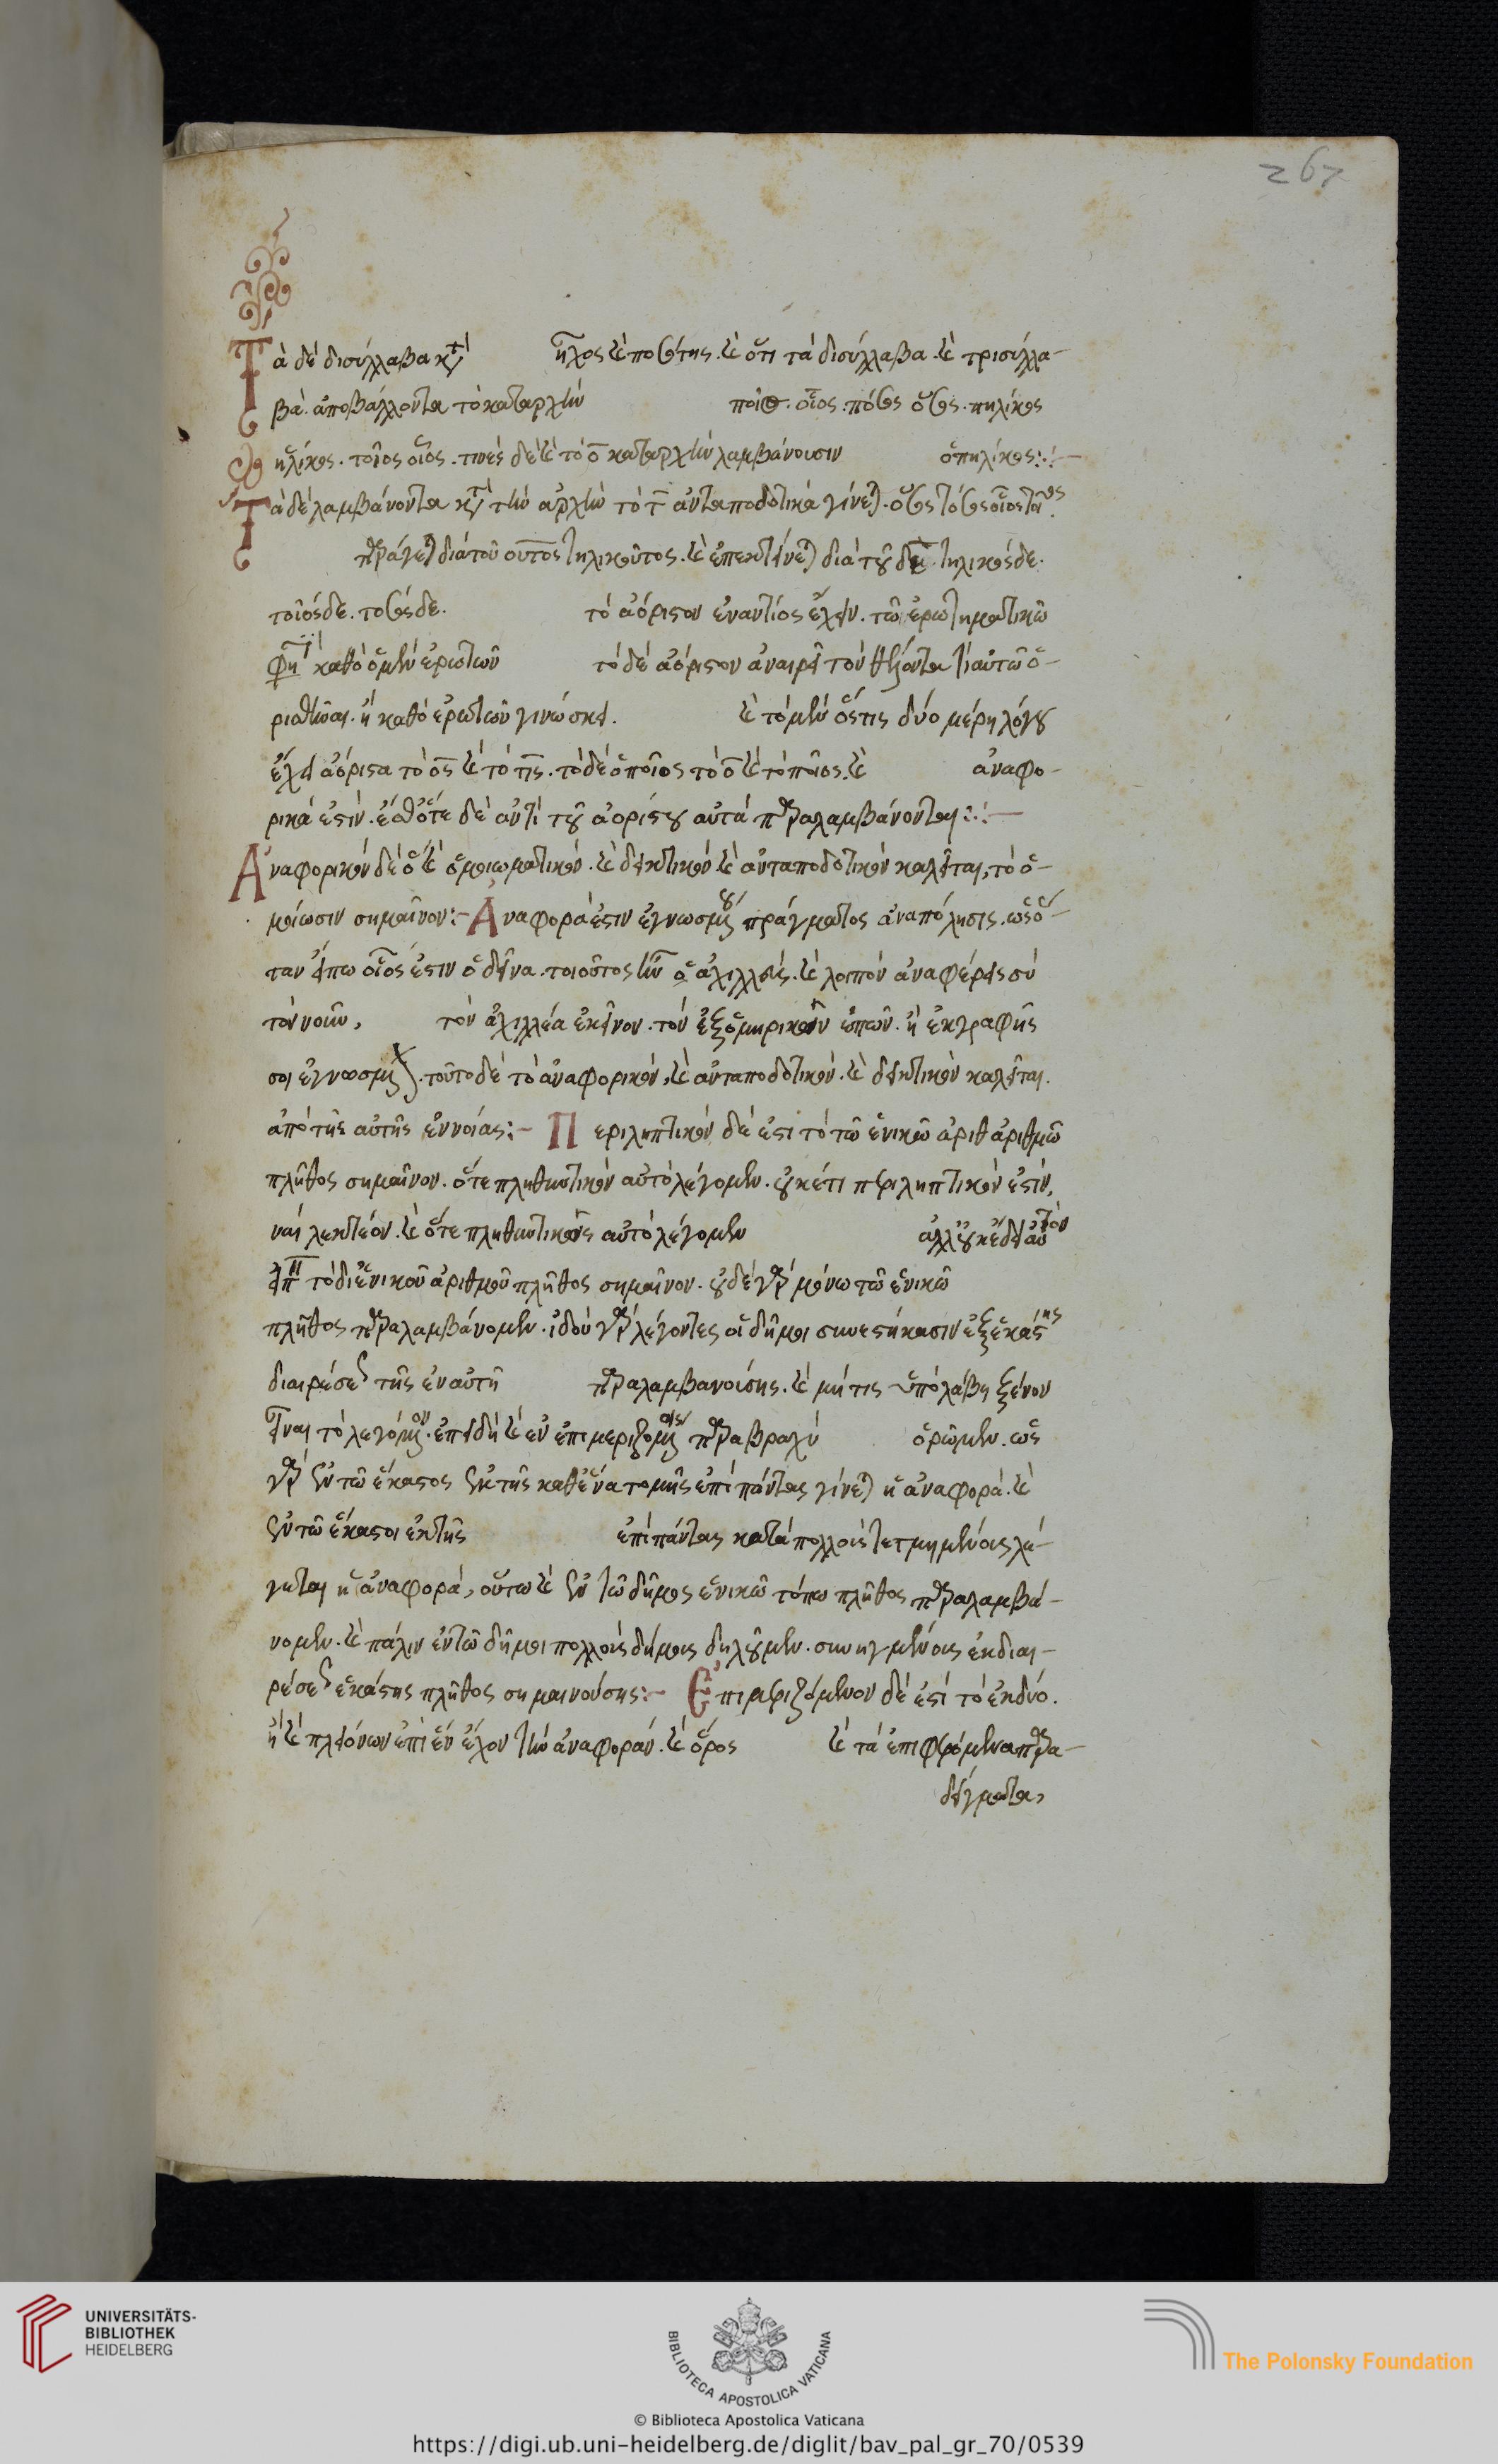 267
Τὰ δὲ δισύλλαβα κτ ῆλος καὶ ποσότης. καὶ ὅτι τὰ δισύλλαβα. καὶ τρισύλλα-
βα. ἀποβάλλοντα τὸ καταρχὴν ποῖος. οἷος. πόσος ὅσος. πηλίκος
ἡλίκος. τοῖος οἷος. τινὲς δὲ καὶ τὸ ο καταρχὴν λαμβάνουσιν ὁπηλίκος:·
Τὰ δὲ λαμβάνοντα τὴν ἀρχὴν τὸ τ ἀνταποδοτικὰ γίνεται. ὅσος τόσος οἷος
παράγεται διὰ τοῦ οὗτος τηλικοῦτος. καὶ ἐπεκτείνεται διὰ τοῦ δε τηλικόσδε.
τοιόσδε. τοσόσδε. τὸ ἀόριστον ἐναντίος ἔχειν. τῶ ἐρωτηματικῶ
φη καθὸ ὁ μὲν ἐρωτῶν τὸ δὲ ἀόριστον ἀναιρεῖ τὸν θέλοντα τι αὐτῶ ὁ-
ρισθῆναι. ἢ καθὸ ἐρωτῶν γινώσκει. καὶ τὸ μὲν ὅστις δύο μέρη λόγου
ἔχει ἀόριστα τὸ ὃς καὶ τὸ τίς. τὸ δὲ ὁποῖος τὸ ο καὶ τὸ ποῖος. καὶ ἀναφο-
ρικά ἐστιν. ἔσθ' ὅτε δὲ ἀντὶ τοῦ ἀορίστου αὐτὰ παραλαμβάνονται:·
Ἀναφορικὸν δὲ ὃ καὶ ὁμοιωματικὸν. καὶ δεικτικὸν καὶ ἀνταποδοτικὸν καλεῖται, τὸ ὁ-
μοίωσιν σημαῖνον:- Ἀναφορά ἐστιν ἐγνωσμένου πράγματος ἀναπόλησις. ὡς ὅ-
ταν εἴπω οἷός ἐστιν ὁ δεῖνα. τοιοῦτος ἦν ὁ ἀχιλλεύς. καὶ λοιπὸν ἀναφέρεις σὺ
τὸν νοῦν, τὸν ἀχιλλέα ἐκεῖνον. τὸν ἐξ ὁμηρικῶν ἐπῶν. ἢ ἐκ γραφῆς
σοι ἐγνωσμένον. τοῦτο δὲ τὸ ἀναφορικὸν, καὶ ἀνταποδοτικὸν. καὶ δεικτικὸν καλεῖται.
ἀπὸ τῆς αὐτῆς ἐννοίας:- Περιληπτικὸν δέ ἐστι τὸ τῶ ἑνικῶ ἀριθ ἀριθμῶ
πλῆθος σημαῖνον. ὅτε πληθυντικὸν αὐτὸ λέγομεν. οὐκέτι περιληπτικόν ἐστιν,
ναὶ λεκτέον. καὶ ὅτε πληθυντικῶς αὐτὸ λέγομεν ἀλλ' οὐκ ἔδει αὐτὸν
εἰπ τὸ δι' ἑνικοῦ ἀριθμοῦ πλῆθος σημαῖνον. οὐδὲ γὰρ μόνω τῶ ἑνικῶ
πλῆθος παραλαμβάνομεν. ἰδοὺ γὰρ λέγοντες οἱ δῆμοι συνεστήκασιν ἐξ ἑκάστης
διαιρέσεως τῆς ἐν αὐτῆ παραλαμβανούσης. καὶ μή τις ὑπολάβη ξένον
εἶναι τὸ λεγόμενον. ἐπειδὴ καὶ ἐν ἐπιμεριζομένοις παραβραχὺ ὁρῶμεν. ὡς
γὰρ ἐν τῶ ἕκαστος ἐκ τῆς καθένα τομῆς ἐπὶ πάντας γίνεται ἡ ἀναφορὰ. καὶ
ἐν τῶ ἕκαστοι ἐκ τῆς ἐπὶ πάντας κατὰ πολλοὺς τετμημένους λέ-
γεται ἡ ἀναφορὰ, οὕτω καὶ ἐν τῶ δῆμος ἑνικῶ τόπω πλῆθος παραλαμβά-
νομεν. καὶ πάλιν ἐν τῶ δῆμοι πολλοὺς δήμους δηλοῦμεν. συνηγμένους ἐκ διαι-
ρέσεως ἑκάστης πλῆθος σημαινούσης:- Ἐπιμεριζόμενον δέ ἐστι τὸ ἐκ δύο.
ἢ καὶ πλειόνων ἐπὶ ἓν ἔχον τὴν ἀναφοράν. καὶ ὅρος καὶ τὰ ἐπιφερόμενα παρα-
δείγματα,
UNIVERSITÄTS-
BIBLIOTHEK
HEIDELBERG
BIBLIOTECA APOSTOLICA VATICANA
The Polonsky Foundation
© Biblioteca Apostolica Vaticana
https://digi.ub.uni-heidelberg.de/diglit/bav_pal_gr_70/0539